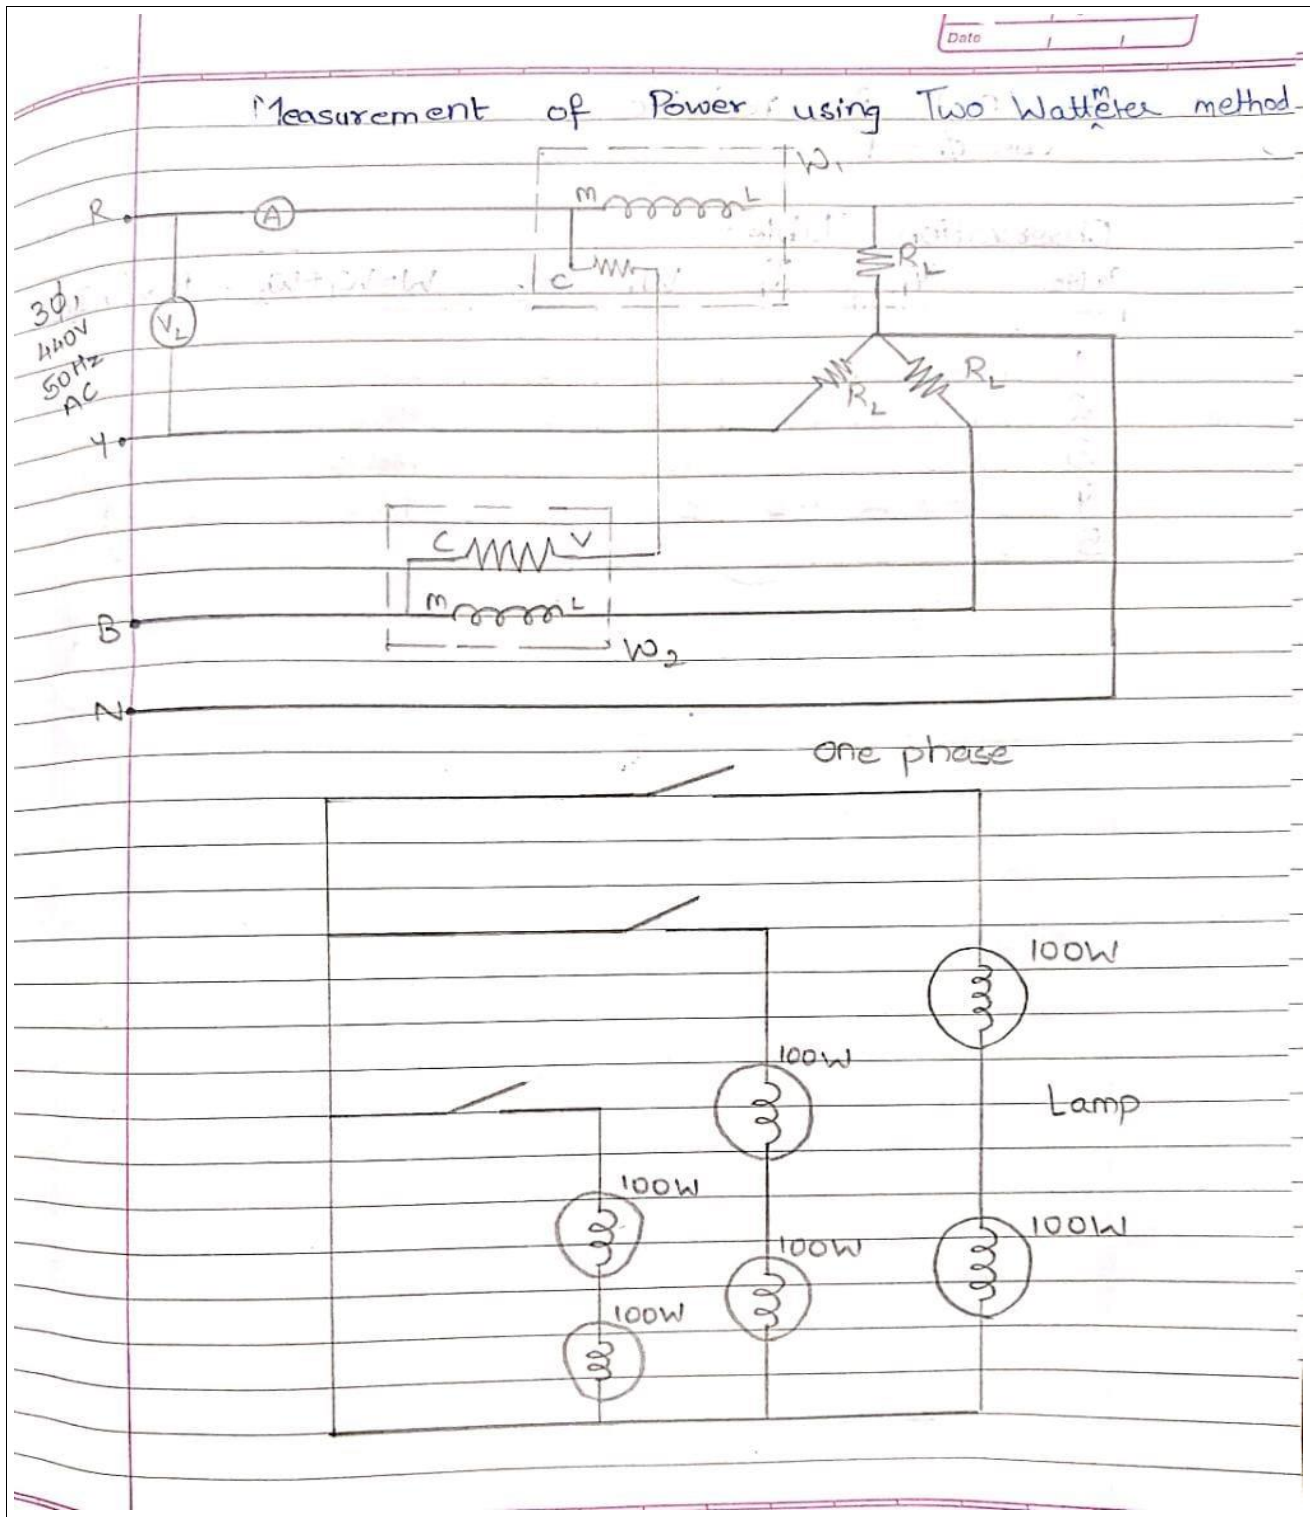 Date
Measurement of Power using Two Wattmeter method
W1
R
A
M
L
C
RL
3ϕ,
440V
50Hz
AC
VL
RL
RL
Y
C
V
M
L
B
W2
N
One phase
100W
100W
Lamp
100W
100W
100W
100W